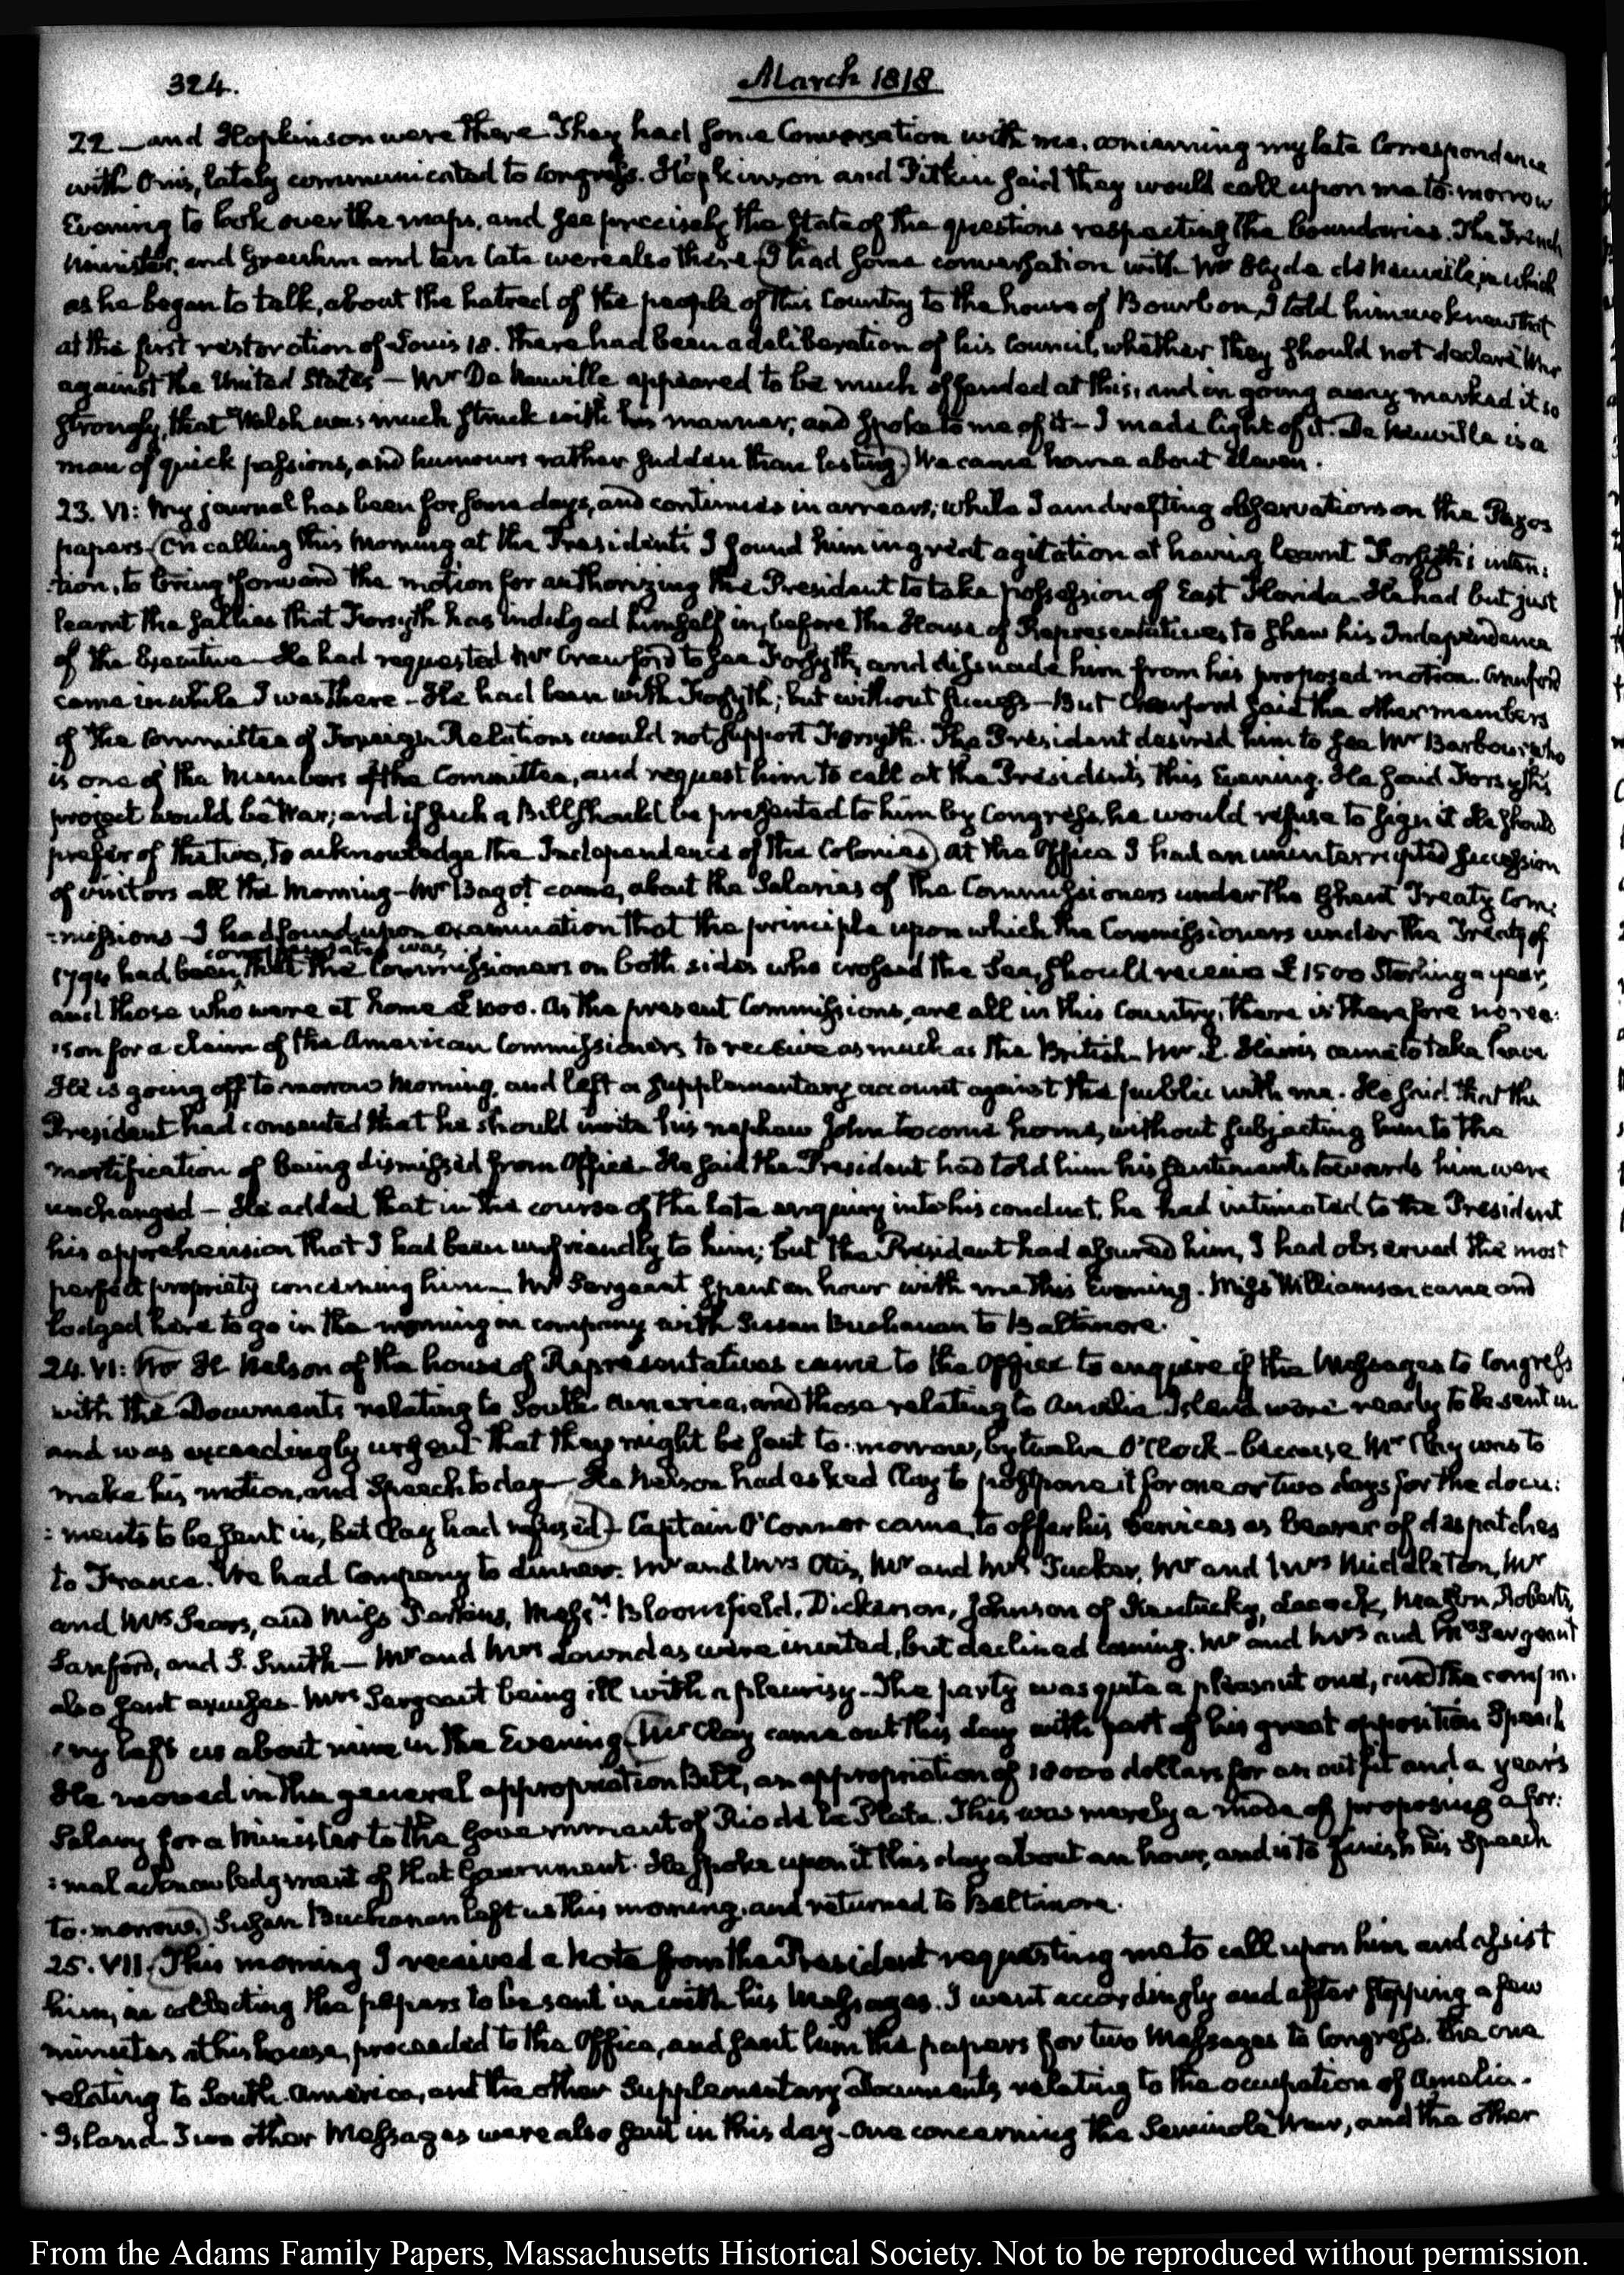 324.
March 1818.
22 — and Hopkinson were there They had some Conversation with me, concerning my late Correspondence
with Onis, lately communicated to Congress. Hopkinson and Pitkin said they would call upon me to-morrow
Evening to look over the maps, and see precisely the state of the questions respecting the boundaries. The French
Minister, and Greuhm and ten Cate were also there. (I had some conversation with Mr Hyde de Neuville, in which
as he began to talk, about the hatred of the people of this Country to the house of Bourbon, I told him we knew that
at the first restoration of Louis 18. there had been a deliberation of his Council, whether they should not declare War
against the United States — Mr De Neuville appeared to be much offended at this, and in going away marked it so
strongly, that Walsh was much struck with his manner, and spoke to me of it — I made light of it. De Neuville is a
man of quick passions, and humours rather sudden than lasting.) We came home about Eleven.
23. VI: My journal has been for some days, and continues in arrears; while I am drafting observations on the Pazos
papers. (On calling this Morning at the President's I found him in great agitation at having learnt Forsyth's inten:
:tion, to bring forward the motion for authorizing the President to take possession of East Florida. He had but just
learnt the sallies that Forsyth has indulged himself in, before the House of Representatives to shew his Independence
of the Executive — He had requested Mr Crawford to see Forsyth, and dissuade him from his proposed motion. Crawford
came in while I was there — He had been with Forsyth; but without success — But Crawford said the other members
of the Committee of Foreign Relations would not support Forsyth. The President desired him to see Mr Barbour, who
is one of the Members of the Committee, and request him to call at the President's this Evening. He said Forsyth's
project would be War; and if such a Bill should be presented to him by Congress, he would refuse to sign it He should
prefer of the two, to acknowledge the Independence of the Colonies) At the Office I had an uninterrupted succession
of visitors all the Morning — Mr Bagot came, about the Salaries of the Commissioners under the Ghent Treaty Com:
:missions — I had found upon examination that the principle upon which the Commissioners under the Treaty of
compensated was
1794 had been, that the Commissioners on both sides who crossed the Sea, should receive £1500 Sterling a year,
and those who were at home £1000. As the present Commissions, are all in this Country, there is therefore no rea:
:son for a claim of the American Commissioners to receive as much as the British. Mr L. Harris came to take leave
He is going off to-morrow Morning, and left a supplementary account against the public with me. He said that the
President had consented that he should invite his nephew John to come home, without subjecting him to the
mortification of being dismissed from Office. He said the President had told him his sentiments towards him were
unchanged — He added that in the course of the late enquiry into his conduct, he had intimated to the President
his apprehension that I had been unfriendly to him; but the President had assured him, I had observed the most
perfect propriety concerning him — Mr Sergeant spent an hour with me this Evening. Miss Williamson came and
lodged here to go in the morning in company with Susan Buchanan to Baltimore.
24. VI: (Mr H Nelson of the house of Representatives came to the Office to enquire if the Messages to Congress
with the Documents relating to South America, and those relating to Amelia Island were ready to be sent in
and was exceedingly urgent that they might be sent to-morrow, by twelve O'Clock — because Mr Clay was to
make his motion, and Speech to day — He Nelson had asked Clay to postpone it for one or two days for the docu:
:ments to be sent in, but Clay had refused) — Captain O'Connor came, to offer his services as bearer of dispatches
to France. We had Company to dinner. Mr and Mrs Otis, Mr and Mrs Tucker, Mr and Mrs Middleton, Mr
and Mrs Sears, and Miss Perkins, Messrs Bloomfield, Dickerson, Johnson of Kentucky, Lacock, Mason, Roberts,
Sanford, and S. Smith — Mr and Mrs Lowndes were invited, but declined coming. Mr and Mrs and Mrs Sergeant
also sent excuses — Mrs Sergeant being ill with a pleurisy — The party was quite a pleasant one, and the compa:
:ny left us about nine in the Evening (Mr Clay came out this day with part of his great opposition Speech
He moved in the general appropriation Bill, an appropriation of 18000 dollars for an outfit and a year's
Salary for a Minister to the Government of Rio de la Plata. This was merely a mode of proposing a for:
:mal acknowledgment of that Government. He spoke upon it this day about an hour, and is to finish his Speech
to-morrow) Susan Buchanan left us this morning, and returned to Baltimore.
25. VII. (This morning I received a Note from the President requesting me to call upon him and assist
him, in collecting the papers to be sent in with his Messages. I went accordingly and after stopping a few
minutes at his house, proceeded to the Office, and sent him the papers for two Messages to Congress. the one
relating to South-America, and the other supplementary Documents, relating to the occupation of Amelia-
Island Two other Messages were also sent in this day — One concerning the Seminole War, and the other
From the Adams Family Papers, Massachusetts Historical Society. Not to be reproduced without permission.